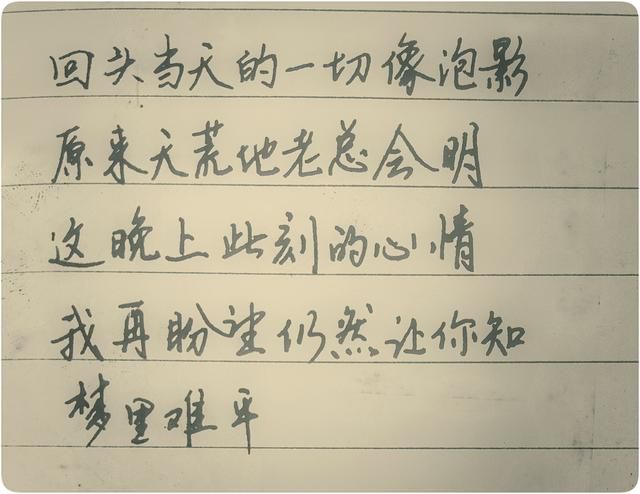 回头当天的一切像泡影
原来天荒地老总会明
这晚上此刻的心情
我再盼望仍然让你知
梦里难平